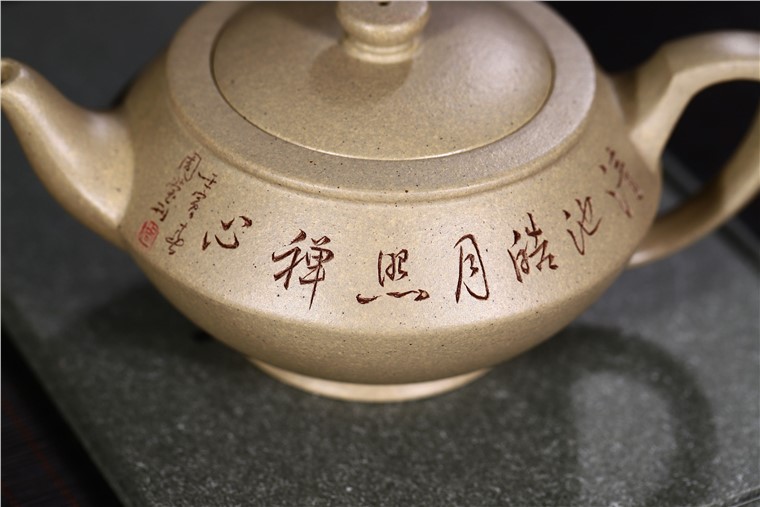 清池皓月照禅心